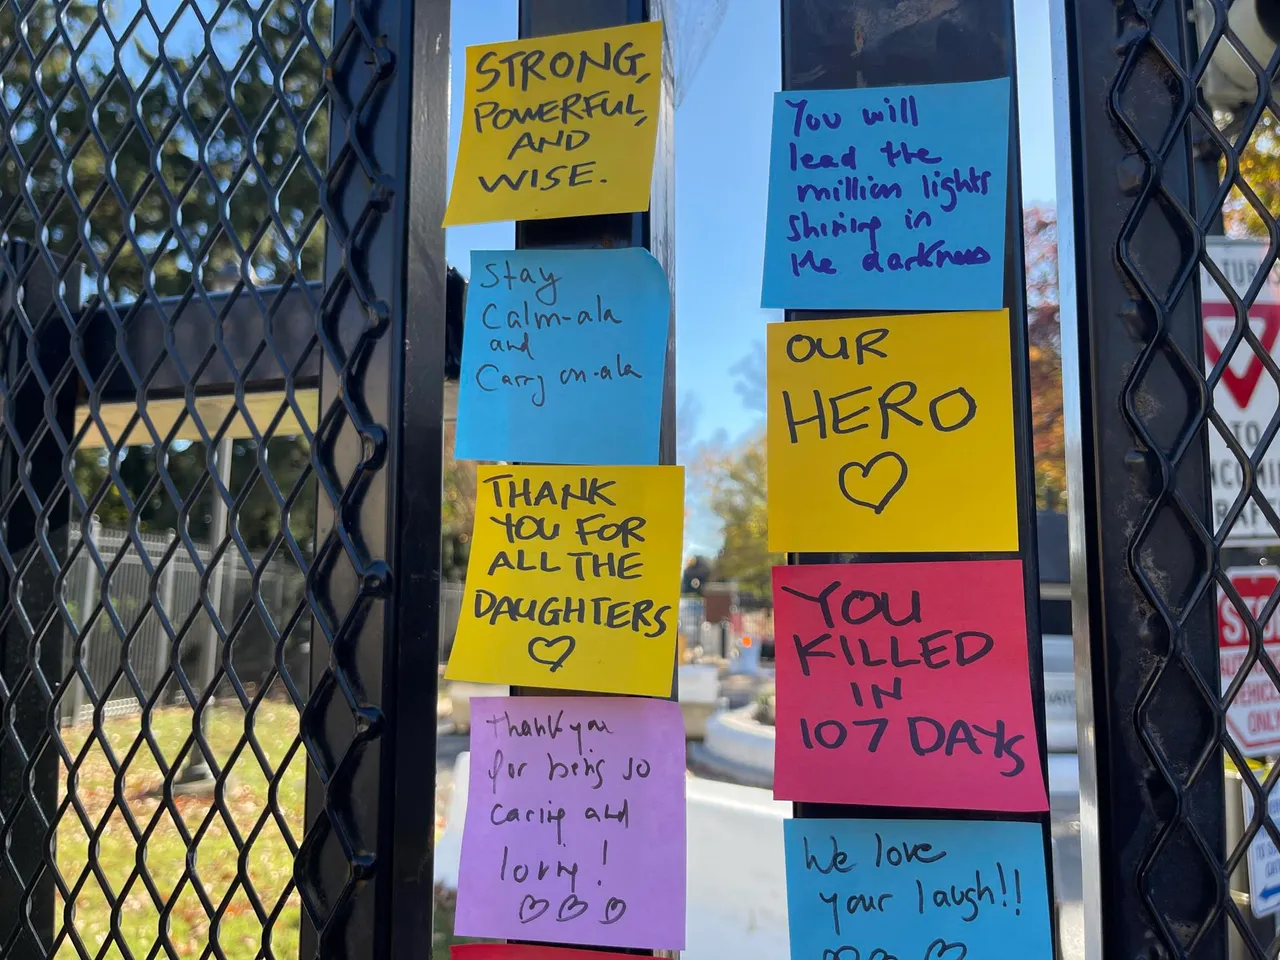 STRONG,
POWERFUL,
AND
WISE.
Stay
Calm-ala
and
Carry on-ala
THANK
YOU FOR
ALL THE
DAUGHTERS
Thank you
for being so
caring and
loving!
You will
lead the
million lights
shining in
the darkness
OUR
HERO
YOU
KILLED
IN
107 DAYS
We love
your laugh!!
TURN
TO